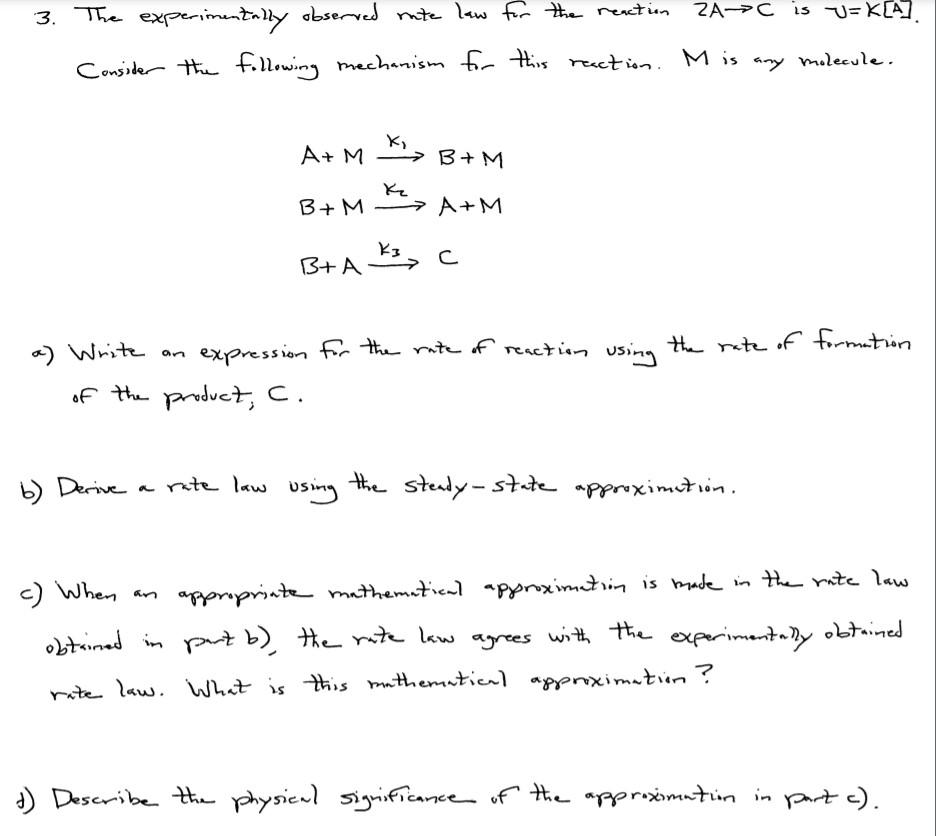 3. The experimentally observed rate law for the reaction 2A→C is v=K[A].
Consider the following mechanism for this reaction. M is any molecule.
A+ M K₁→ B+M
B+M K₂→ A+M
B+A K₃→ C
a) Write an expression for the rate of reaction using the rate of formation
of the product, C.
b) Derive a rate law using the steady-state approximation.
c) When an appropriate mathematical approximation is made in the rate law
obtained in part b), the rate law agrees with the experimentally obtained
rate law. What is this mathematical approximation?
d) Describe the physical significance of the approximation in part c).